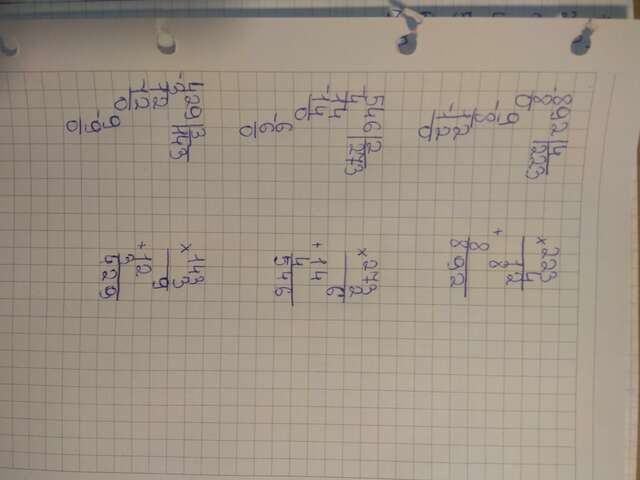 -892|4
8|223
0
-9
8
12
-12
0
×223
4
12
8
+
8
892
546|2
-4|273
14
-14
0
-6
6
0
×273
2
6
+14
4
546
429|3
-3|143
12
-12
0
-9
9
0
×143
3
9
+12
3
429